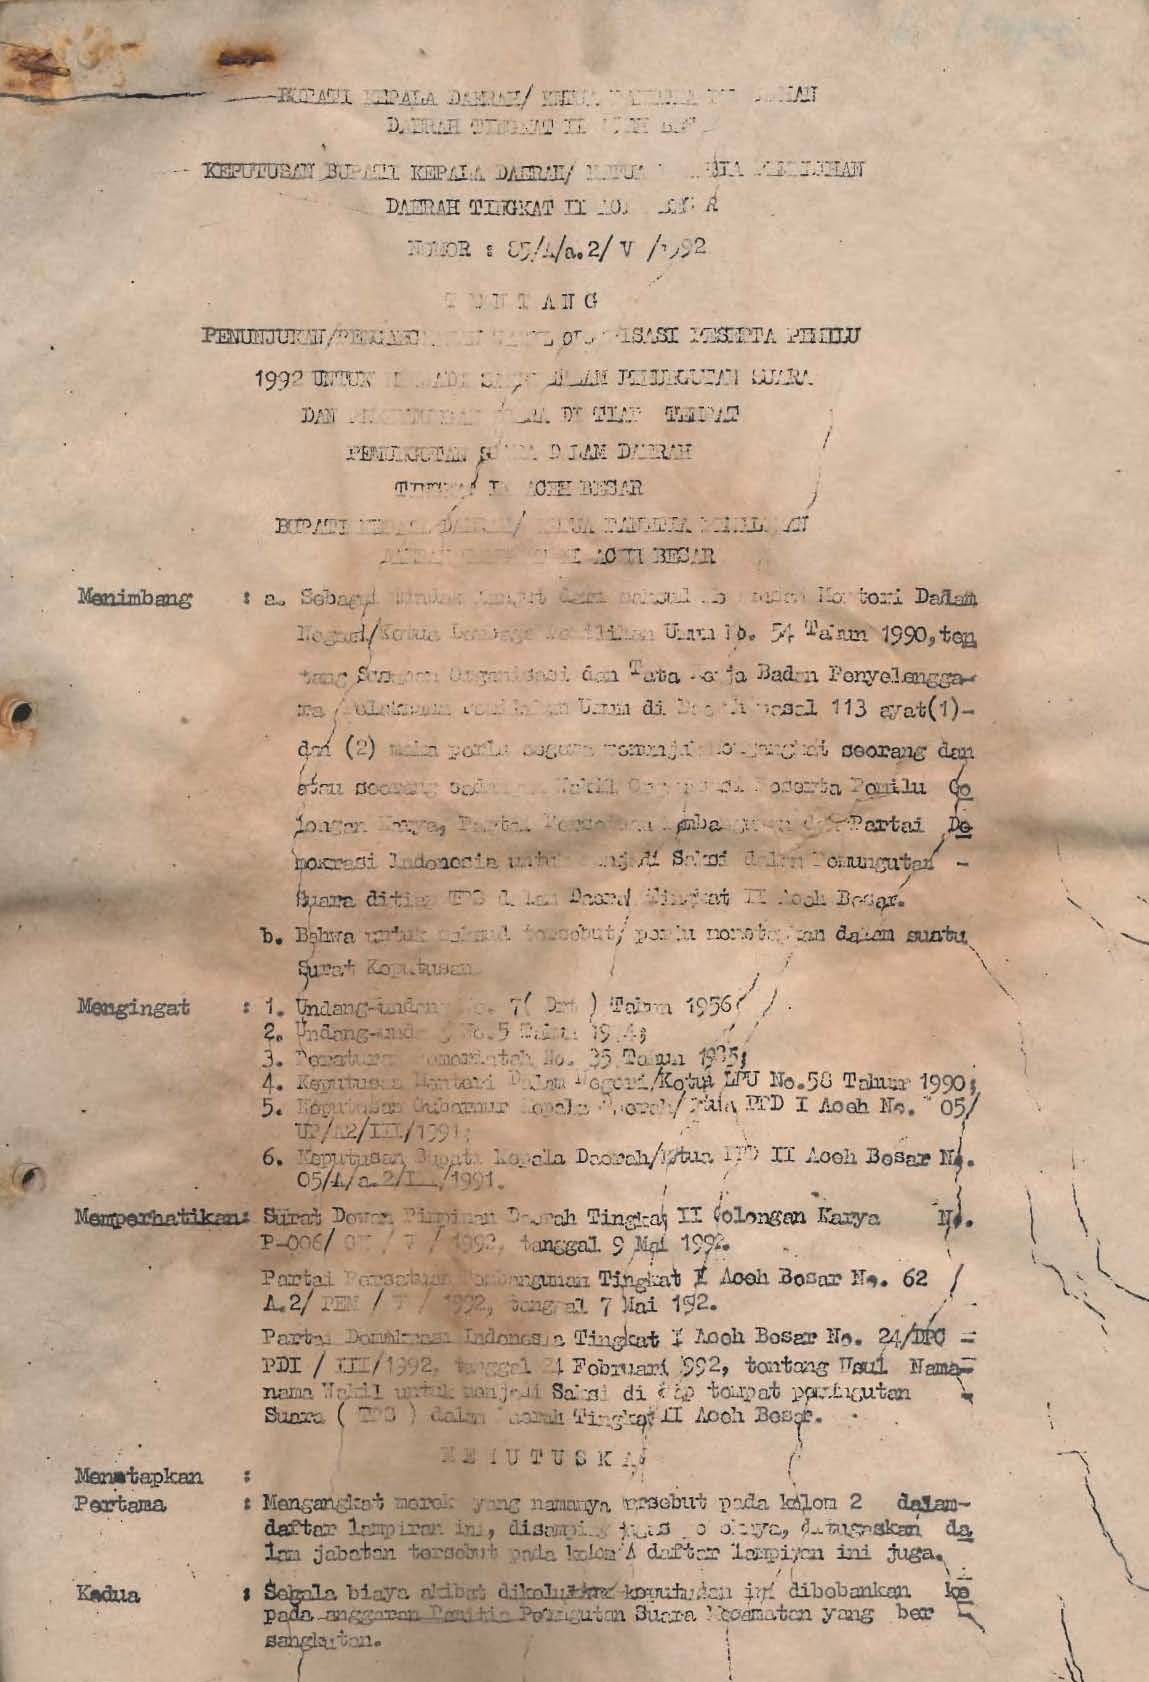 BUPATI KEPALA DAERAH/ KETUA PANITIA PEMILIHAN
DAERAH TINGKAT II ACEH BESAR
KEPUTUSAN BUPATI KEPALA DAERAH/ KETUA PANITIA PEMILIHAN
DAERAH TINGKAT II ACEH BESAR
NOMOR : 85/A/a.2/ V /1992
T E N T A N G
PENUNJUKAN/PENGANGKATAN WAKIL ORGANISASI PESERTA PEMILU
1992 UNTUK MENJADI SAKSI DALAM PEMUNGUTAN SUARA
DAN SUARA DI TIAP TEMPAT
PEMUNGUTAN SUARA DALAM DAERAH
TINGKAT II ACEH BESAR
BUPATI KEPALA DAERAH/ KETUA PANITIA PEMILIHAN
DAERAH TINGKAT II ACEH BESAR
Menimbang : a. Sebagai tindak lanjut dari maksud Keputusan Mentori Dalam
Negeri/Ketua Lembaga Pemilihan Umum No. 54 Tahun 1990, ten
tang Susunan Organisasi dan Tata Kerja Badan Penyelengga-
ra Pelaksana Pemilihan Umum di Daerah pasal 113 ayat(1)-
dan (2) maka perlu segera menunjuk/mengangkat seorang dan
atau seorang Wakil Organisasi Peserta Pemilu Go
longan Karya, Partai Persatuan Pembangunan dan Partai De
mokrasi Indonesia untuk menjadi Saksi dalam Pemungutan -
Suara ditiap TPS dalam Daerah Tingkat II Aceh Besar.
b. Bahwa untuk maksud tersebut, perlu menetapkan dalam suatu
Surat Keputusan.
Mengingat : 1. Undang-undang No. 7( Drt ) Tahun 1956;
2. Undang-undang No.5 Tahun 1974;
3. Peraturan Pemerintah No. 35 Tahun 1985;
4. Keputusan Mentori Dalam Negeri/Ketua LPU No.58 Tahun 1990;
5. Keputusan Gubernur Kepala Daerah/Ketua PPD I Aceh No. 05/
UP/A2/III/1991;
6. Keputusan Bupati Kepala Daerah/Ketua PPD II Aceh Besar No.
05/A/a.2/III/1991.
Memperhatikan: Surat Dewan Pimpinan Daerah Tingkat II Golongan Karya No.
P-006/ / V / 1992, tanggal 9 Mai 1992.
Partai Persatuan Pembangunan Tingkat II Aceh Besar No. 62
A.2/ PEM / V / 1992, tanggal 7 Mai 192.
Partai Demokrasi Indonesia Tingkat II Aceh Besar No. 24/DPC -
PDI / III/1992, tanggal 24 Februari 1992, tentang Usul Nama-
nama Wakil untuk menjadi Saksi di tiap tempat pemungutan
Suara ( TPS ) dalam Daerah Tingkat II Aceh Besar.
M E M U T U S K A N
Menetapkan :
Pertama : Mengangkat mereka yang namanya tersebut pada kolom 2 dalam-
daftar lampiran ini, disamping tugas pokoknya, ditugaskan da
lam jabatan tersebut pada kolom 4 daftar lampiran ini juga.
Kedua : Segala biaya akibat dikeluarkan keputusan ini dibebankan ke
pada anggaran Panitia Pemungutan Suara Kecamatan yang ber -
sangkutan.